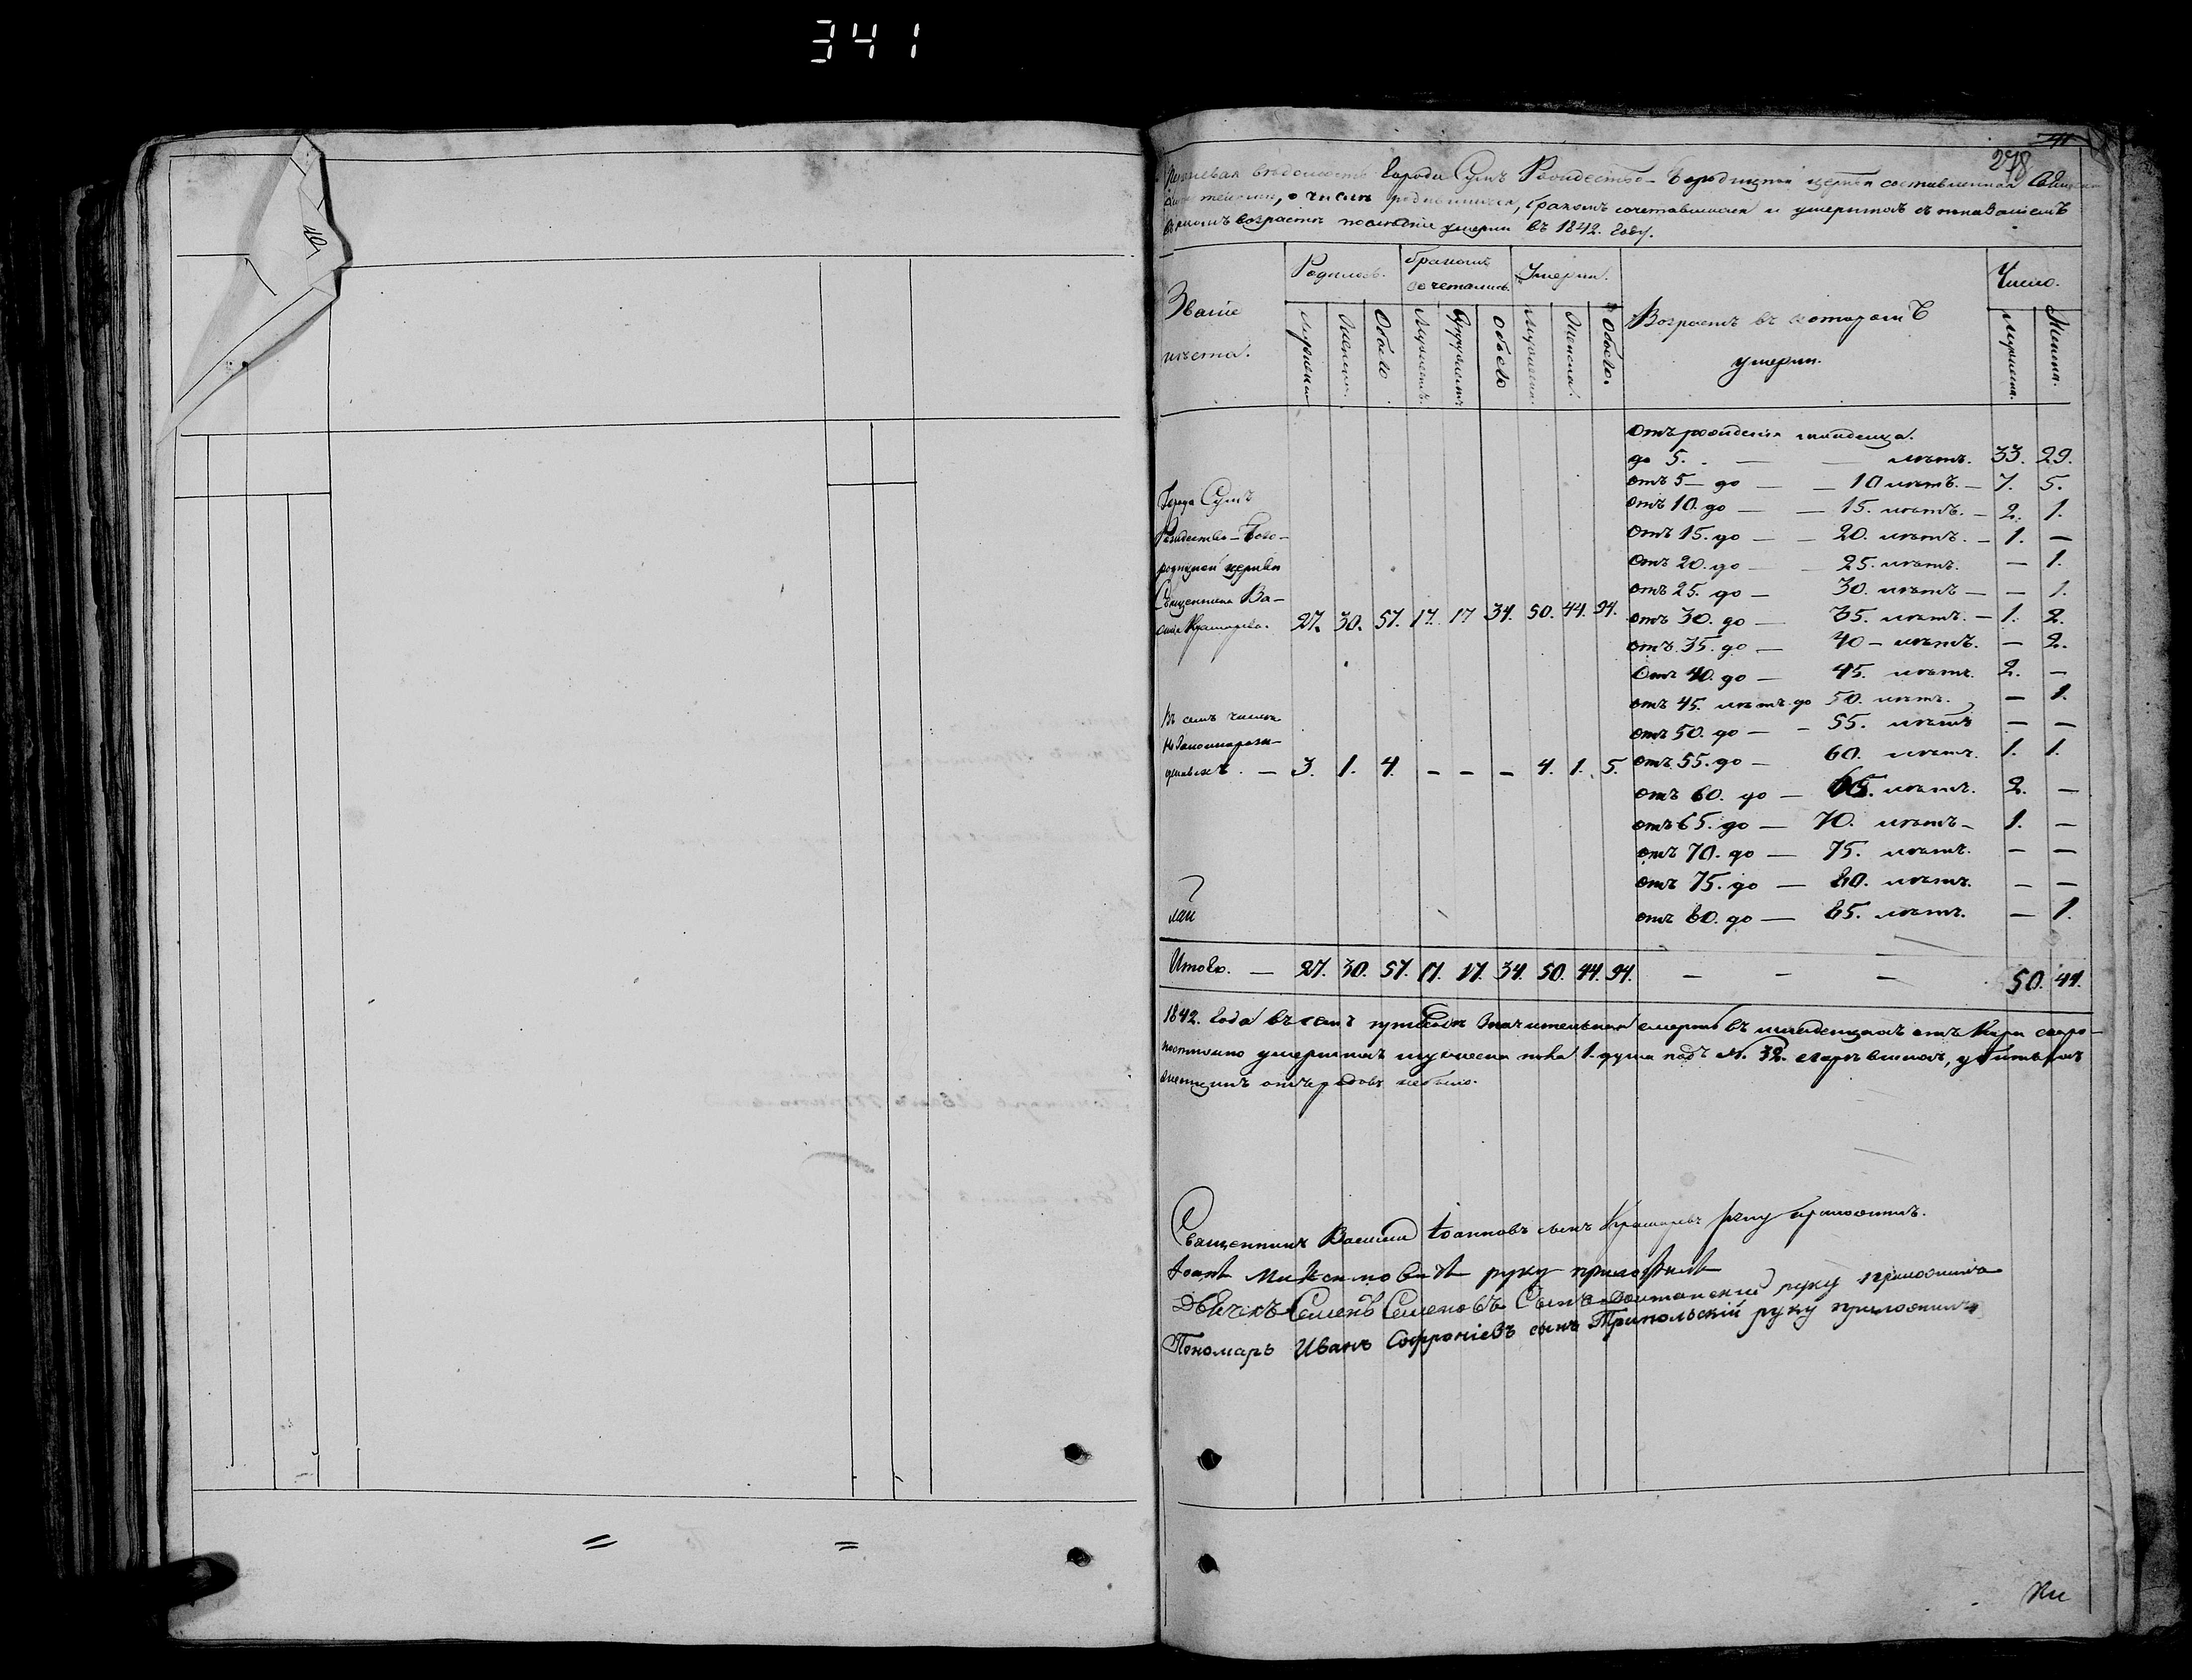 341
278
вѣдомость Города Сумъ Рождество-Богородичной церкви составленная
о числѣ родившихся, бракомъ сочетавшихся и умершихъ съ показаніемъ
въ возрастѣ умерли въ 1842. Году.
Званіе мѣста.
Родилось.
бракомъ сочетались.
Умерли.
Возрастъ въ которомъ умерли.
Число.
Мужеска Женска. Обоего Мужескъ. Обоего Мужеска. Женска. Обоего.
Мужеска. Женска.
Отъ рожденія младенца.
до 5. — — лѣтъ. 33. 29.
отъ 5 — до — — 10 лѣтъ. — 7. 5.
отъ 10. до — — 15. лѣтъ. — 2. 1.
Отъ 15. до — — 20. лѣтъ. — 1. —
отъ 20. до — — 25. лѣтъ. — 1.
отъ 25. до — 30. лѣтъ — — 1.
отъ 30. до — 35. лѣтъ. — 1. 2.
отъ 35. до — 40 — лѣтъ. — 2.
Отъ 40. до — 45. лѣтъ. 2. —
отъ 45. лѣтъ до 50. лѣтъ. — 1.
отъ 50. до — — 55. лѣтъ — —
отъ 55. до — 60. лѣтъ. 1. 1.
отъ 60. до — 65. лѣтъ. 2. —
отъ 65. до — 70. лѣтъ — 1. —
отъ 70. до — 75. лѣтъ. — —
отъ 75. до — 80. лѣтъ. — —
отъ 80. до — 85. лѣтъ. — 1.
Города Сумъ
Рождество-Бого-
родичной церкви
Священника Ва-
27. 30. 57. 17. 17 34. 50. 44. 94.
Въ семъ числѣ
незаконнорож-
денныхъ. — 3. 1. 4. — — — 4. 1. 5.
Итого. — 27. 30. 57. 17. 17. 34. 50. 44. 94. — — — 50. 44.
1842. Года въ семъ значительная смертность въ младенцахъ отъ Кори скоро-
постижно умершихъ мужеска пола 1. душа подъ №. 32. убитыхъ
небыло.
Священникъ Василій Іоанновъ сынъ руку приложилъ.
Іоаннъ Максимовичъ руку приложилъ
Дьячокъ Семенъ Семеновъ Сынъ руку приложилъ
Пономарь Иванъ Софроніевъ сынъ Трипольскій руку приложилъ